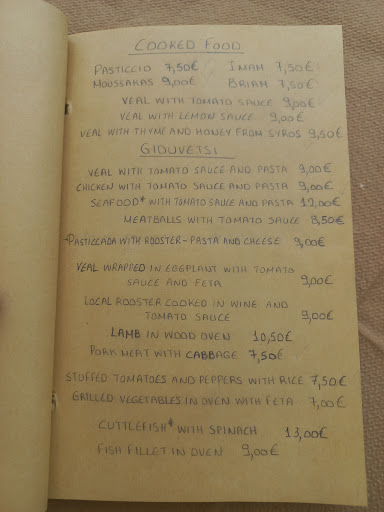 COOKED FOOD
PASTICCIO 7,50€ IMAM 7,50€
MOUSSAKAS 9,00€ BRIAM 7,50€
VEAL WITH TOMATO SAUCE 9,00€
VEAL WITH LEMON SAUCE 9,00€
VEAL WITH THYME AND HONEY FROM SYROS 9,50€
GIOUVETSI
VEAL WITH TOMATO SAUCE AND PASTA 9,00€
CHICKEN WITH TOMATO SAUCE AND PASTA 9,00€
SEAFOOD* WITH TOMATO SAUCE AND PASTA 12,00€
MEATBALLS WITH TOMATO SAUCE 8,50€
-PASTICCADA WITH ROOSTER-PASTA AND CHEESE 9,00€
VEAL WRAPPED IN EGGPLANT WITH TOMATO
SAUCE AND FETA 9,00€
LOCAL ROOSTER COOKED IN WINE AND
TOMATO SAUCE 9,00€
LAMB IN WOOD OVEN 10,50€
PORK MEAT WITH CABBAGE 7,50€
STUFFED TOMATOES AND PEPPERS WITH RICE 7,50€
GRILLED VEGETABLES IN OVEN WITH FETA 7,00€
CUTTLEFISH* WITH SPINACH 13,00€
FISH FILLET IN OVEN 9,00€